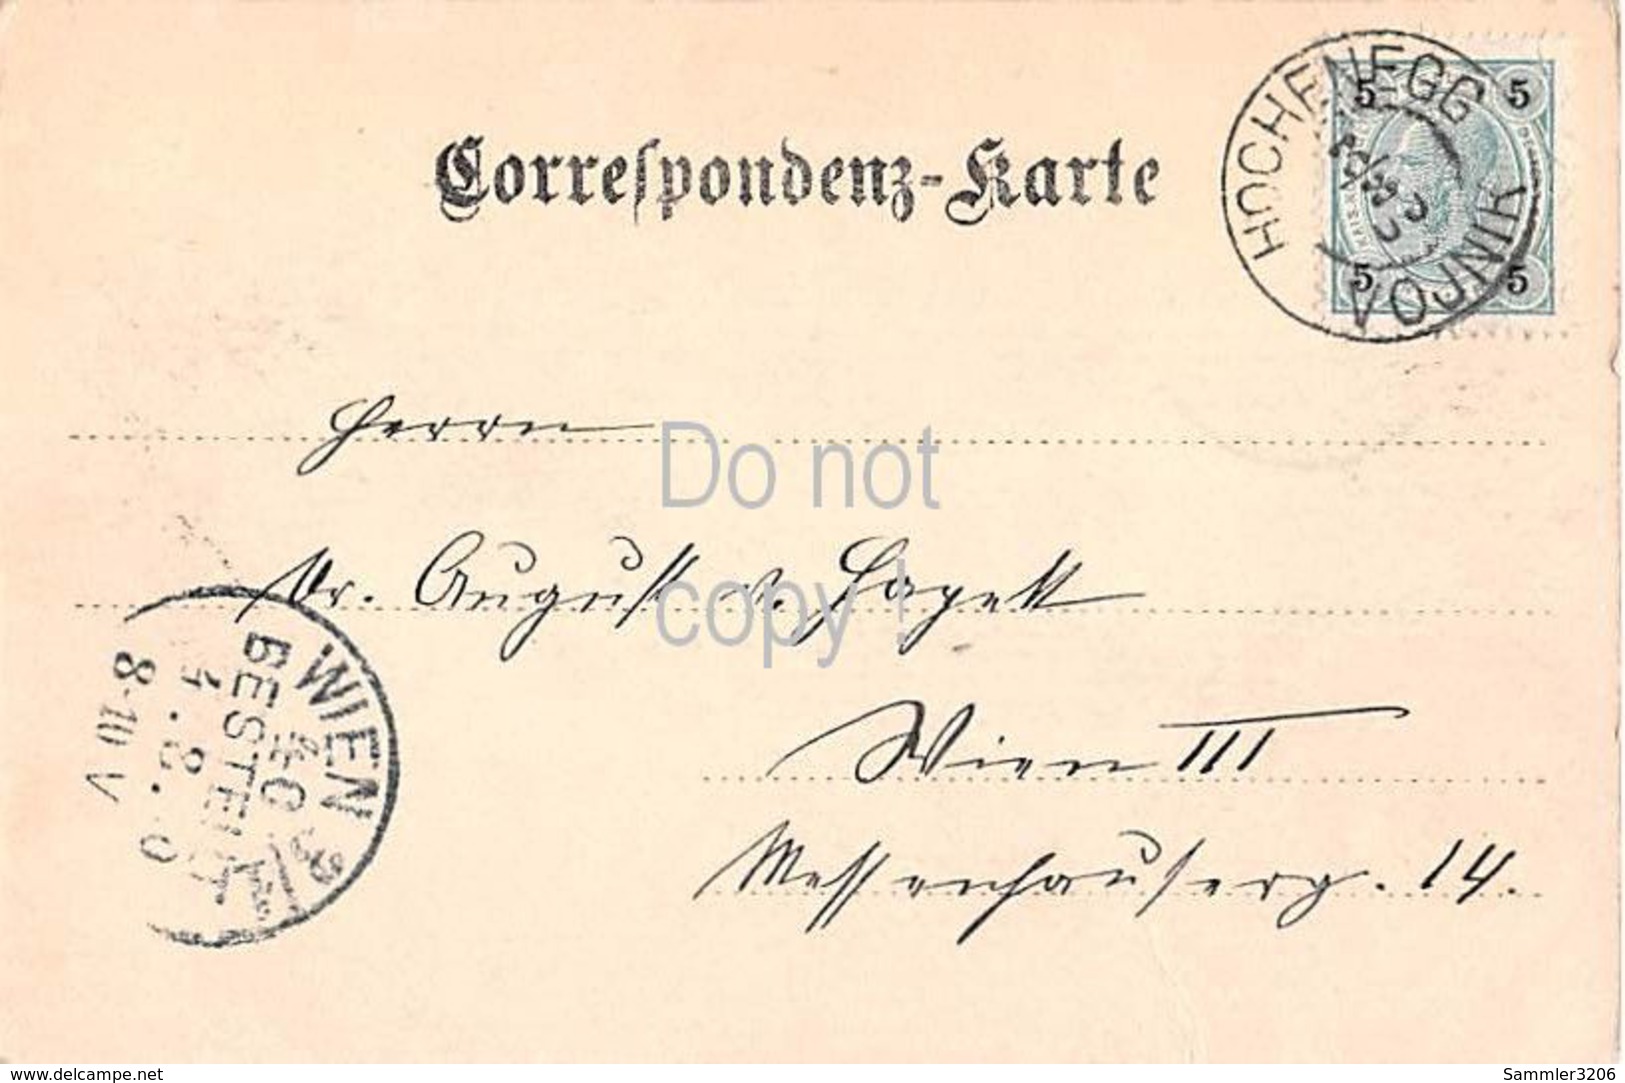 Correspondenz-Karte
HOCHENEGG
VOJNIK
5 5
5 5
Herrn
Dr. August v. Hayek
Wien III
Messenhauserg. 14.
WIEN
BESTELLT
8·10 V
Do not
copy !
www.delcampe.net
Sammler3206